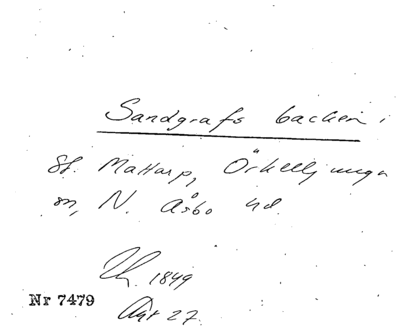 Sandgrafs backen i
St. Mattarp, Örkelljunga
sn, N. Åsbo hd.
1849
Nr 7479
Akt 27